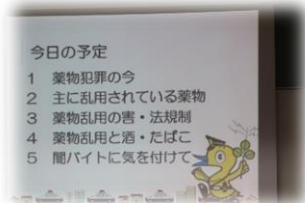 今日の予定
1 薬物犯罪の今
2 主に乱用されている薬物
3 薬物乱用の害・法規制
4 薬物乱用と酒・たばこ
5 闇バイトに気を付けて